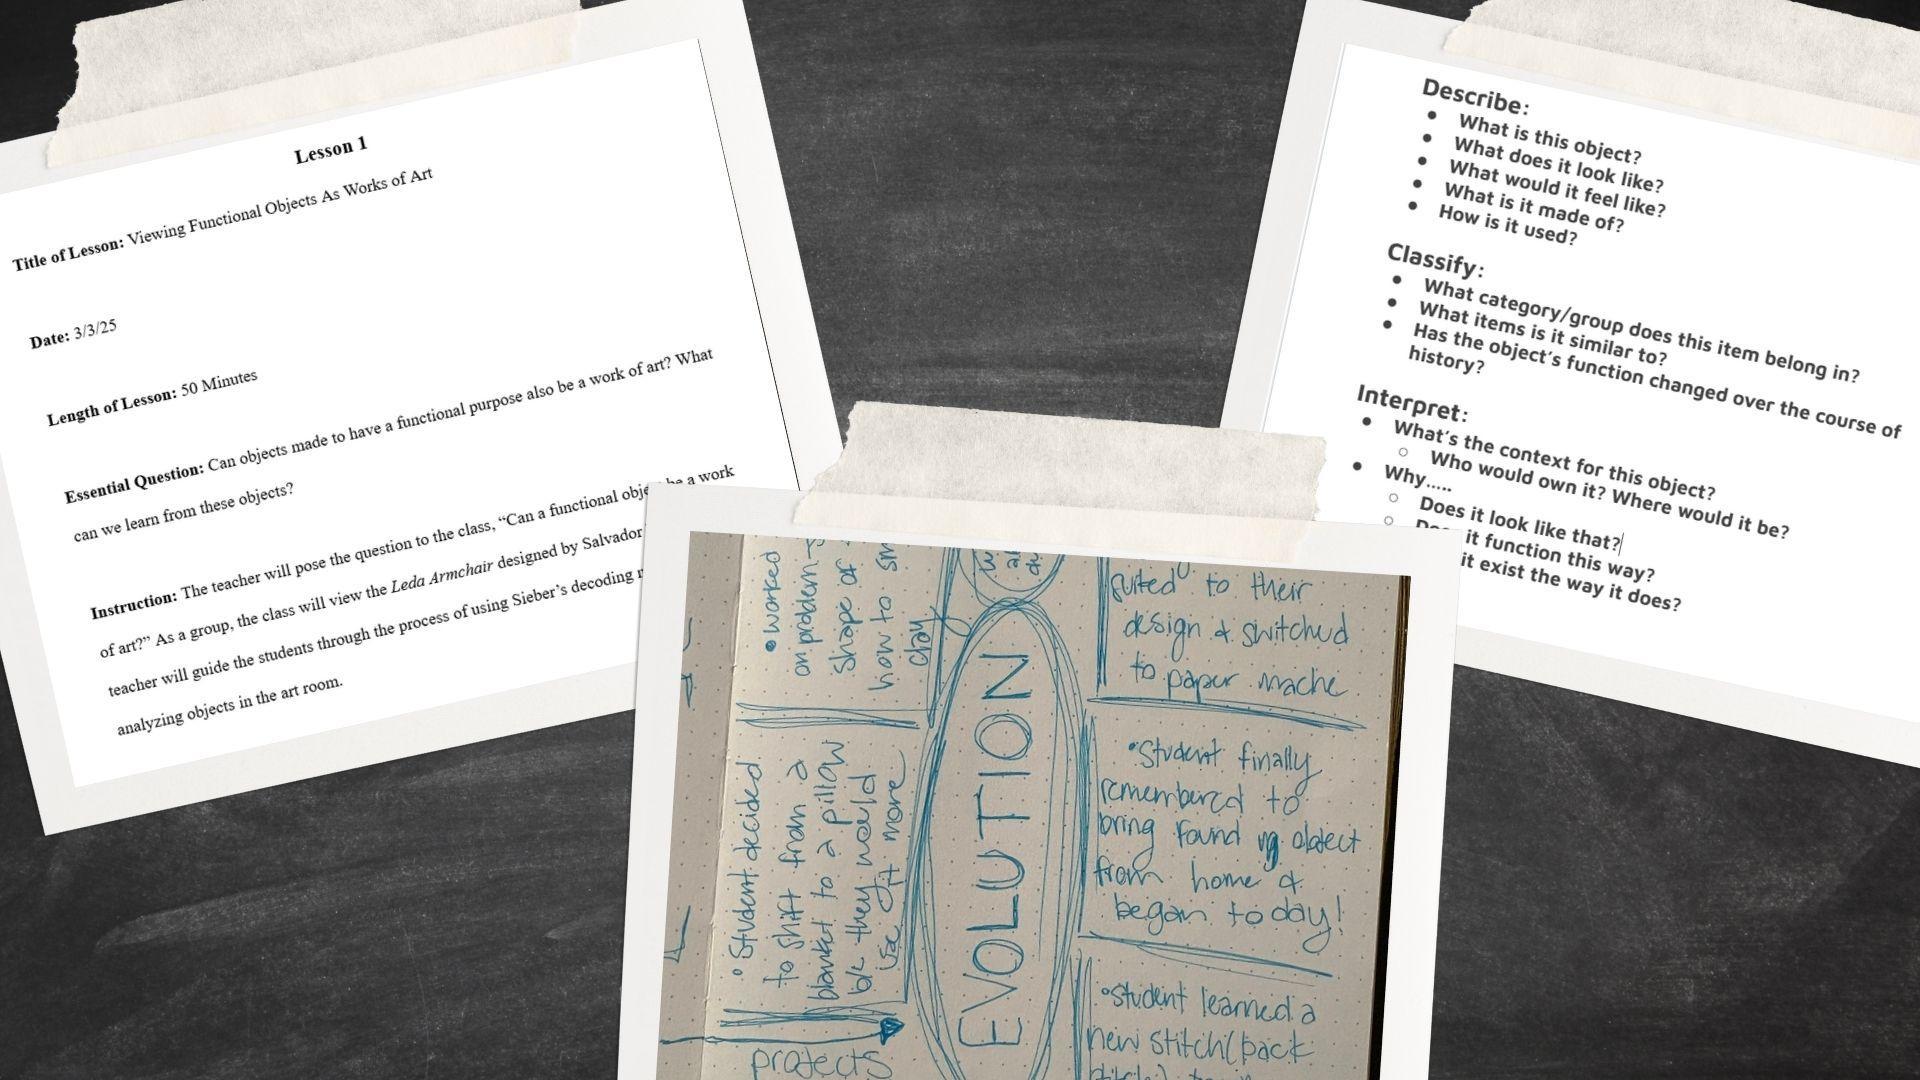 Lesson 1
Title of Lesson: Viewing Functional Objects As Works of Art
Date: 3/3/25
Length of Lesson: 50 Minutes
Essential Question: Can objects made to have a functional purpose also be a work of art? What
can we learn from these objects?
Instruction: The teacher will pose the question to the class, “Can a functional be a work
of art?” As a group, the class will view the Leda Armchair designed by Salvador
teacher will guide the students through the process of using Sieber’s decoding
analyzing objects in the art room.
Describe:
• What is this object?
• What does it look like?
• What would it feel like?
• What is it made of?
• How is it used?
Classify:
• What category/group does this item belong in?
• What items is it similar to?
• Has the object’s function changed over the course of
history?
Interpret:
• What’s the context for this object?
○ Who would own it? Where would it be?
• Why.....
○ Does it look like that?
○ it function this way?
it exist the way it does?
• worked
on problem
shape of
how to
clay
• Student decided
to shift from a
blanket to a pillow
b/c they would
use it more
projects
EVOLUTION
suited to their
design & switched
to paper mache
• Student finally
remembered to
bring found object
from home &
began today!
• Student learned a
new stitch (back